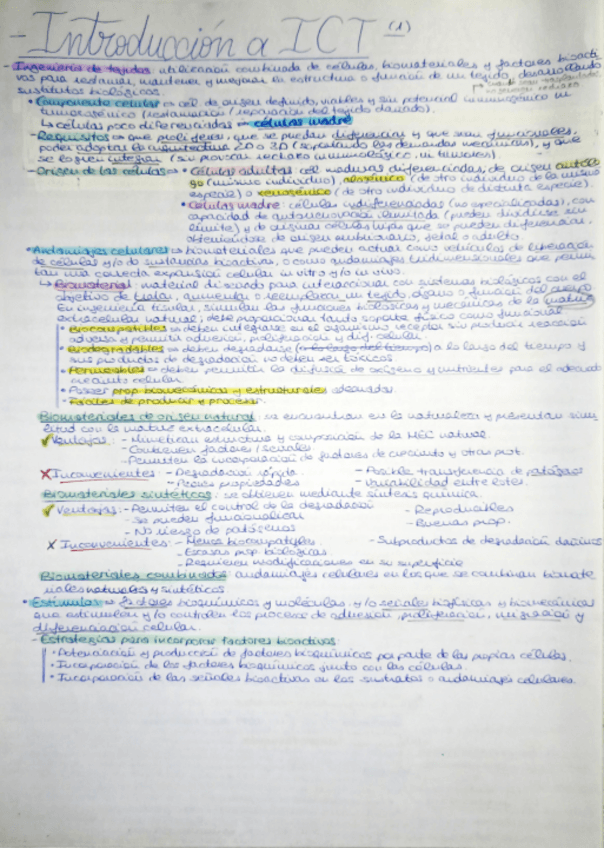 - Introducción a ICT (1)
- Ingeniería de tejidos: utilización combinada de células, biomateriales y factores bioacti
vos para restaurar, mantener y mejorar la estructura o función de un tejido, desarrollando
sustitutos biológicos.
• Componente celular ⇒ cél de origen definido, viables y sin potencial inmunogénico ni
tumorogénico (restauración/reparación del tejido dañado).
↳ células poco diferenciadas ⇒ células madre
- Requisitos ⇒ que proliferen, que se puedan diferenciar y que sean funcionales,
poder adoptar la arquitectura 2D o 3D (soportando las demandas mecánicas), y que
se logren integrar (sin provocar rechazo inmunológico, ni tumores).
- Origen de las células ⇒ • Células adultas: cél maduras diferenciadas, de origen autólo
go (mismo individuo), alogénico (de otro individuo de la misma
especie) o xenogénico (de otro individuo de distinta especie).
• Células madre: células indiferenciadas (no especializadas), con
capacidad de autorrenovación ilimitada (pueden dividirse sin
límite) y de originar células hijas que se pueden diferenciar,
obteniéndose de origen embrionario, fetal o adulto.
• Andamiajes celulares ⇒ biomateriales que pueden actuar como vehículos de liberación
de células y/o de sustancias bioactivas, o como andamiajes tridimensionales que permi
tan una correcta expansión celular in vitro y/o in vivo.
↳ Biomaterial: material diseñado para interaccionar con sistemas biológicos con el
objetivo de tratar, aumentar o reemplazar un tejido, órgano o función del cuerpo
En ingeniería tisular, simulan las funciones biológicas y mecánicas de la matriz
extracelular natural; debe proporcionar tanto soporte físico como funcional
• Biocompatibles ⇒ deben integrarse en el organismo receptor sin producir reacción
adversa y permitir adhesión, proliferación y dif. celular
• Biodegradables ⇒ deben degradarse a lo largo del tiempo y
sus productos de degradación no deben ser tóxicos
• Permeables ⇒ deben permitir la difusión de oxígeno y nutrientes para el adecuado
crecimiento celular
• Poseer prop. biomecánicas y estructurales adecuadas.
- Fáciles de producir y procesar.
Biomateriales de origen natural: se encuentran en la naturaleza y presentan simi
litud con la matriz extracelular.
✓ Ventajas: - Mimetizan estructura y composición de la MEC natural
- Contienen factores/señales
- Permiten la incorporación de factores de crecimiento y otras prot.
✗ Inconvenientes: - Degradación rápida - Posible transferencia de patógenos
- Peores propiedades - Variabilidad entre lotes.
Biomateriales sintéticos: se obtienen mediante síntesis química.
✓ Ventajas: - Permiten el control de la degradación - Reproducibles
- Se pueden funcionalizar - Buenas prop.
- No riesgo de patógenos
✗ Inconvenientes: - Menos biocompatibles - Subproductos de degradación dañinos
- Escasas prop. biológicas
- Requieren modificaciones en su superficie
Biomateriales combinados: andamiajes celulares en los que se combinan biomate
riales naturales y sintéticos
• Estímulos ⇒ factores bioquímicos y moléculas, y/o señales biofísicas y biomecánicas
que estimulan y/o controlan los procesos de adhesión, proliferación, migración y
diferenciación celular.
- Estrategias para incorporar factores bioactivos
• Potenciación y producción de factores bioquímicos por parte de las propias células.
• Incorporación de los factores bioquímicos junto con las células.
• Incorporación de las señales bioactivas en los sustratos o andamiajes celulares.